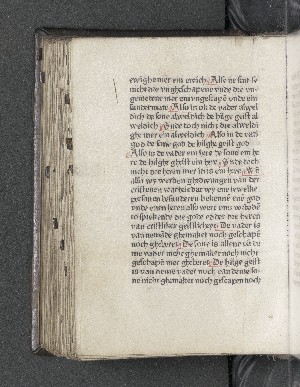 ewich mer ein ewich Also ne sint se
nicht dre vngheschapene vnde dre vn
gemetene mer ein vngescape vnde ein
vndermate Also is ok de vader alwel
dich de sone alweldich de hilge geist al
weldich Vnde toch nicht dre alweldi
ghe mer ein alweldich Also is de vader
god de sone god de hilghe geist god
Also is de vader ein here de sone ein he
re de hilghe geist ein here Vnde toch
nicht dre heren mer it is ein here We
also wy werden ghedwungen van der
cristenen warheit dat wy ene iewelke
persin in besunderen bekenne ene god
vnde enen heren also wert vns vorbode
to sprekende dre gode edder dre heren
van cristliker geistlicheyt De vader is
van nemande ghemaket noch geschape
noch ghebaret De sone is allene va de
me vader nicht ghemaket noch nicht
geschapen mer ghebaret De hilge geist
is van deme vader noch van deme so
ne nicht ghemaket noch gescapen noch